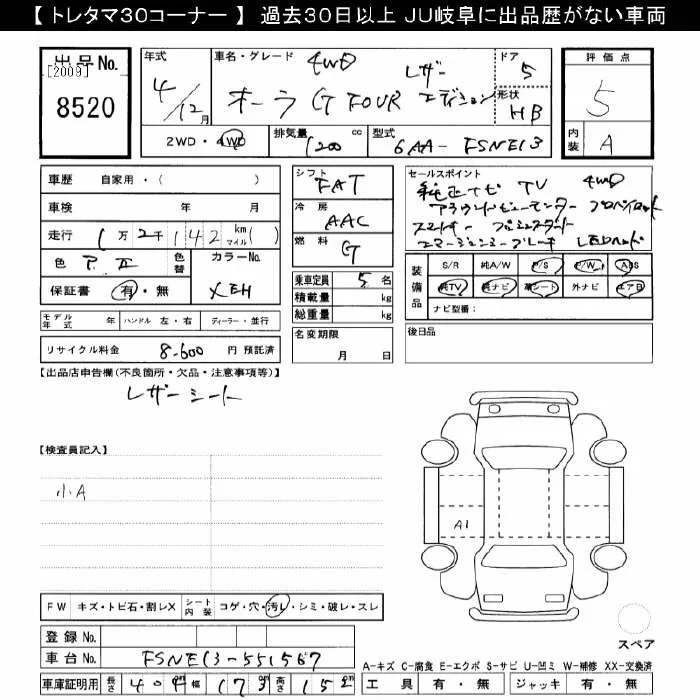 【 トレタマ30コーナー 】 過去30日以上 JU岐阜に出品歴がない車両
出品No. [2009] 8520
年式 4/12月
車名・グレード 4WD レザー
オーラ G FOUR エディション
ドア 5
形状 HB
評価点 5
内装 A
2WD・4WD 排気量 1200 cc 型式 6AA-FSNE13
車歴 自家用・( )
車検 年 月
走行 1万2千142 km マイル( )
色 色替 カラーNo. XEH
保証書 有・無
シフト FAT
冷房 AAC
燃料 G
セールスポイント
純正ナビ TV 4WD
アラウンドビューモニター プロパイロット
エマージェンシーブレーキ LEDヘッド
乗車定員 5 名
積載量 kg
総重量 kg
装備品 S/R 純A/W P/S P/W ABS
純TV 純ナビ 革シート 外ナビ エアB
ナビ型番:
モデル年式 年 ハンドル 左・右 ディーラー・並行
名変期限 月 日
後日品
リサイクル料金 8,600 円 預託済
【出品店申告欄(不良箇所・欠品・注意事項等)】
レザーシート
【検査員記入】
小A
A1
FW キズ・トビ石・割レX シート内装 コゲ・穴・汚レ・シミ・破レ・スレ
登録No.
車台No. FSNE13-551567
スペア
A-キズ C-腐食 E-エクボ S-サビ U-凹ミ W-補修 XX-交換済
車庫証明用 長さ 404 幅 173 高さ 152
工具 有・無 ジャッキ 有・無